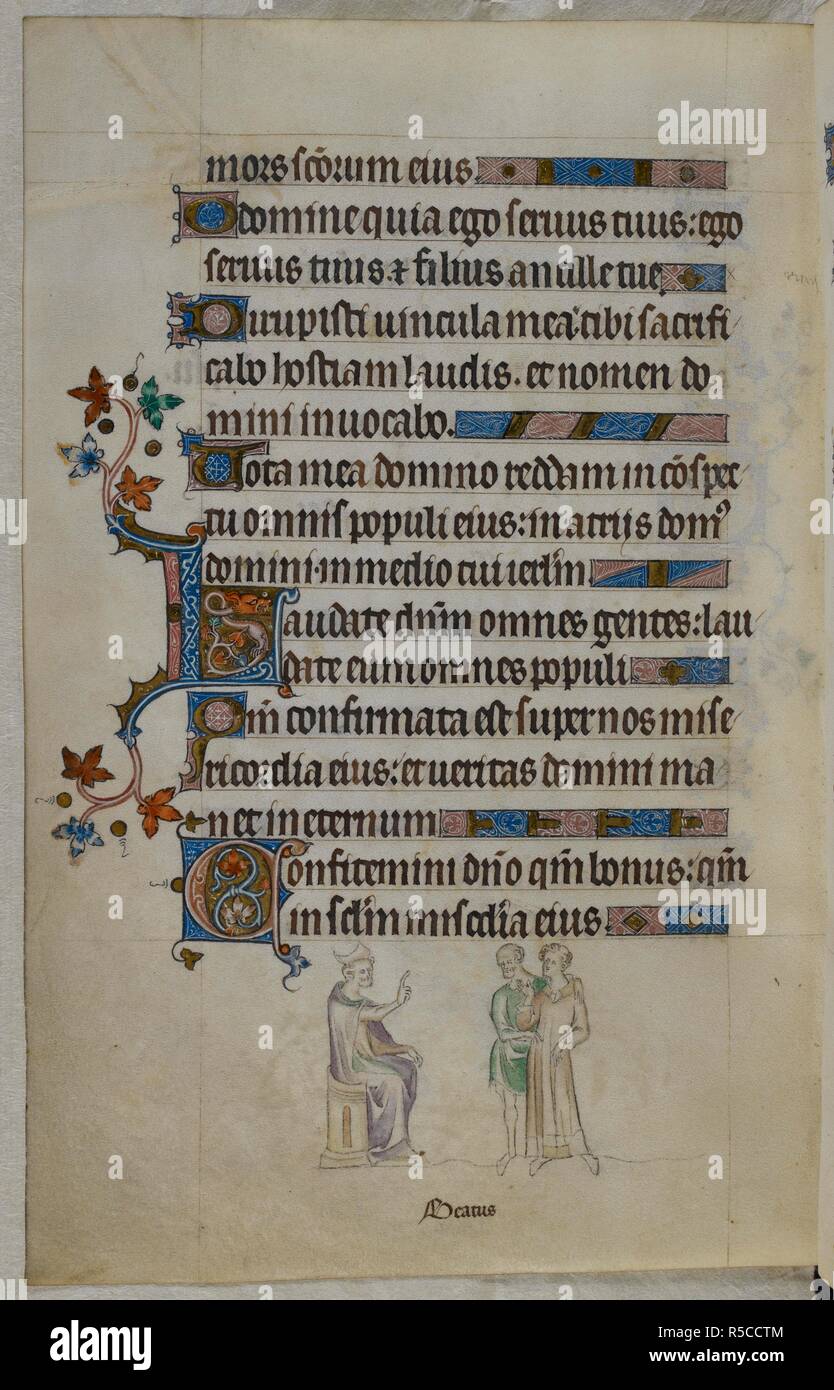 mors sc̄orum eius.
O domine quia ego seruus tuus: ego
seruus tuus & filius ancille tue
Dirupisti uincula mea: tibi sacrifi
cabo hostiam laudis. et nomen do
mini inuocabo.
Uota mea domino reddam in cōspec
tu omnis populi eius: in atrijs domꝰ
domini in medio tui ierłm
Laudate dn̄m omnes gentes: lau
date eum omnes populi
Qm̄ confirmata est super nos mise
ricordia eius: et ueritas domini ma
net in eternum
Confitemini dn̄o qm̄ bonus: qm̄
in sc̄lm miscd̄ia eius
Beatus
alamy
alamy
Image ID: R5CCTM
www.alamy.com